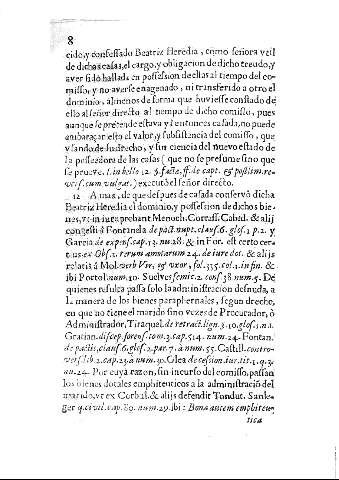 8
cido, y confessado Beatriz Heredia, como señora vtil
de dichas casas, el cargo, y obligacion de dicho treudo, y
aver sido hallada en possession de ellas al tiempo del co-
misso, y no averse enagenado, ni transferido a otro el
dominio, al menos de forma que huviesse constado de
ello al señor directo al tiempo de dicho comisso, pues
aunque se pretende estava ya entonces casada, no puede
embaraçar esto el valor, y subsistencia del comisso, que
vsando de su drecho, y sin ciencia del nuevo estado de
la possedora de las casas ( que no se presume sino que
se prueve, l. in bello 12. §. factæ, ff. de capt. & postlim. re-
vers. cum vulgat. ) executò el señor directo.
12 A mas, de que despues de casada conservò dicha
Beatriz Heredia el dominio, y possession de dichos bie-
nes, vt in iure probant Menoch. Corras. Cabed. & alij
congesti à Fontanela de pact. nupt. clausf. 6. glos. 1 p. 2. y
Garcia de expens. cap. 13. nu. 28. & in For. est certo cer-
tius ex Obs. 1. rerum amotarum 24. de iure dot. & alijs
relatis à Mol. verb. Vir, & vxor, fol. 335. col. 1. in fin. &
ibi Portol. num. 10. Suelves semic. 2. cons. 38. num. 5. De
quienes resulta passa solo la administracion desnuda, a
la manera de los bienes paraphernales, segun drecho,
en que no tiene el marido sino vezes de Procurador, ò
Administrador, Tiraquel. de retract. lign. §. 10. glos. 1. n. 1.
Gratian. discep. forens. tom. 3. cap. 514. num. 24. Fontan.
de pactis, claus. 6. glos. 2. par. 7. à num. 55. Castill. contro-
vers. lib. 2. cap. 25. à num. 30. Olea de cession. iur. tit. 1. q. 3.
nu. 24. Por cuya razon, sin incurso del comisso, passan
los bienes dotales emphiteuticos a la administració del
marido, vt ex Corbul. & alijs defendit Tondut. Sanle-
ger q. civil. cap. 89. num. 29. ibi : Bona autem emphiteu-
tica